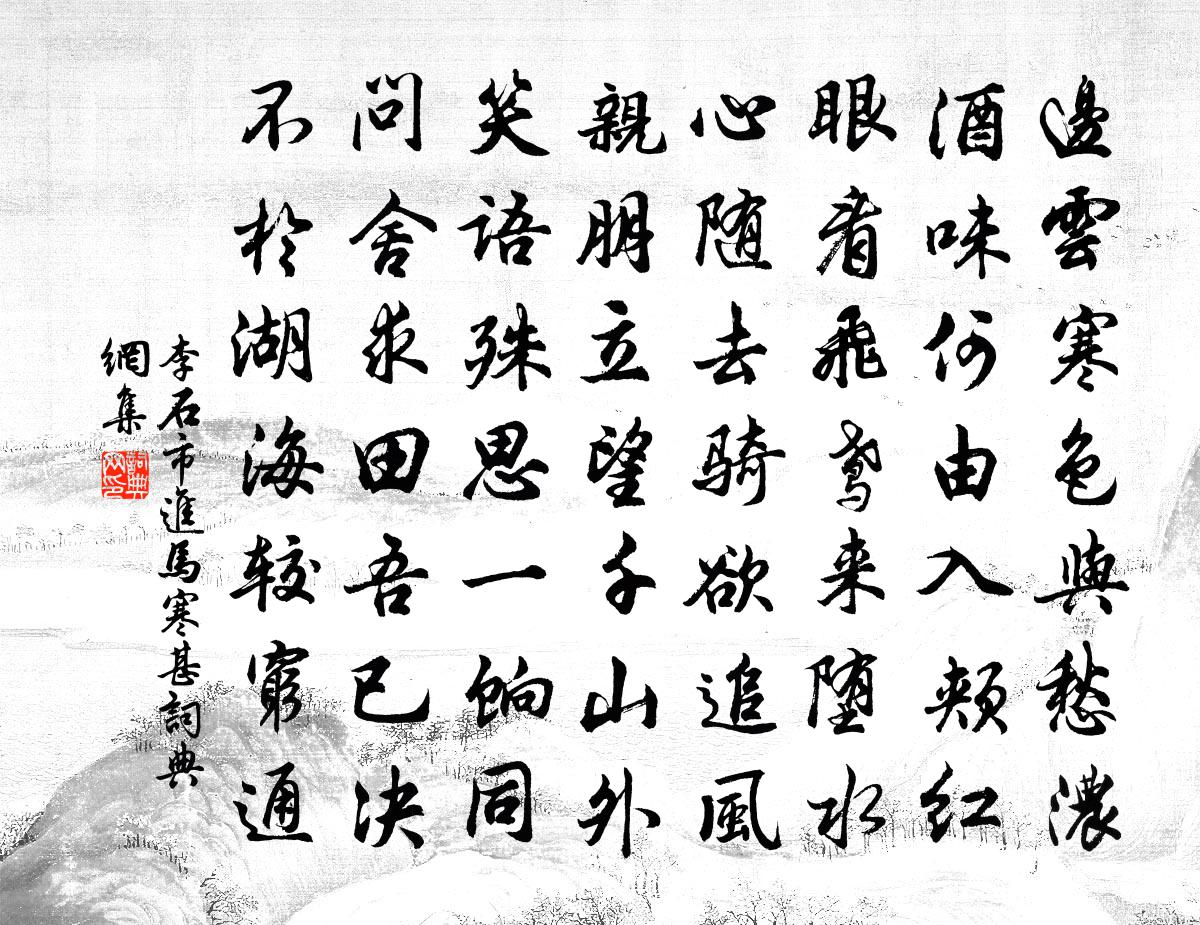 邊雲寒色與愁濃
酒味何由入頰紅
眼看飛鳶来堕水
心随去騎欲追風
親朋立望千山外
笑語殊思一餉同
問舍求田吾已決
不於湖海較窮通
李石市進馬寒甚詞典
網集
詞典
网印